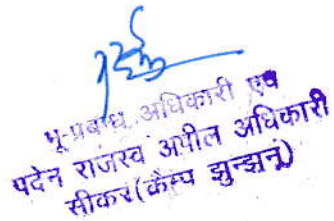 भू-प्रबन्ध अधिकारी एवं
पदेन राजस्व अपील अधिकारी
सीकर(कैम्प झुन्झनू)